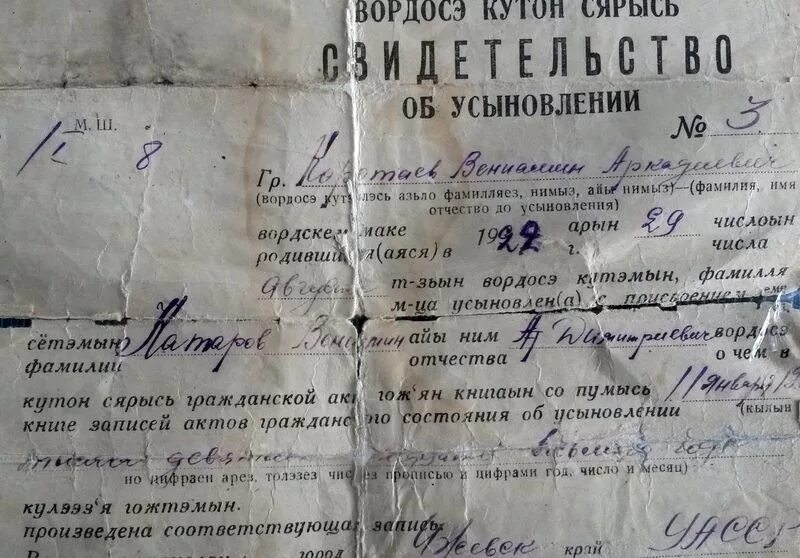 ВОРДОСЭ КУТОН СЯРЫСЬ
СВИДЕТЕЛЬСТВО
ОБ УСЫНОВЛЕНИИ
М. Ш.
№ 3
8
Гр. Каратаев Вениамин Аркадиевич
(вордосэ кутылэсь азьло фамиллязэ, нимызэ, айы нимызэ)—(фамилия, имя
отчество до усыновления)
вордскем маке 1927 арын 29 числоын
родивший(аяся) в г. числа
августа т-зьын вордосэ кутэмын, фамилля
м-ца усыновлен(а) с присвоением ему
сётэмын Катаров Вениамин айы ним Дмитриевич вордосэ
фамилии отчества о чем в
кутон сярысь гражданской акт гож'ян книгаын со пумысь 11 января 193
книге записей актов гражданского состояния об усыновлении (кылын
тысяча девятьсот восьмого года
но цифраен арез, толэзез числ прописью и цифрами год, число и месяц)
кулээз'я гожтэмын.
произведена соответствующая запись.
город Ижевск край УАССР